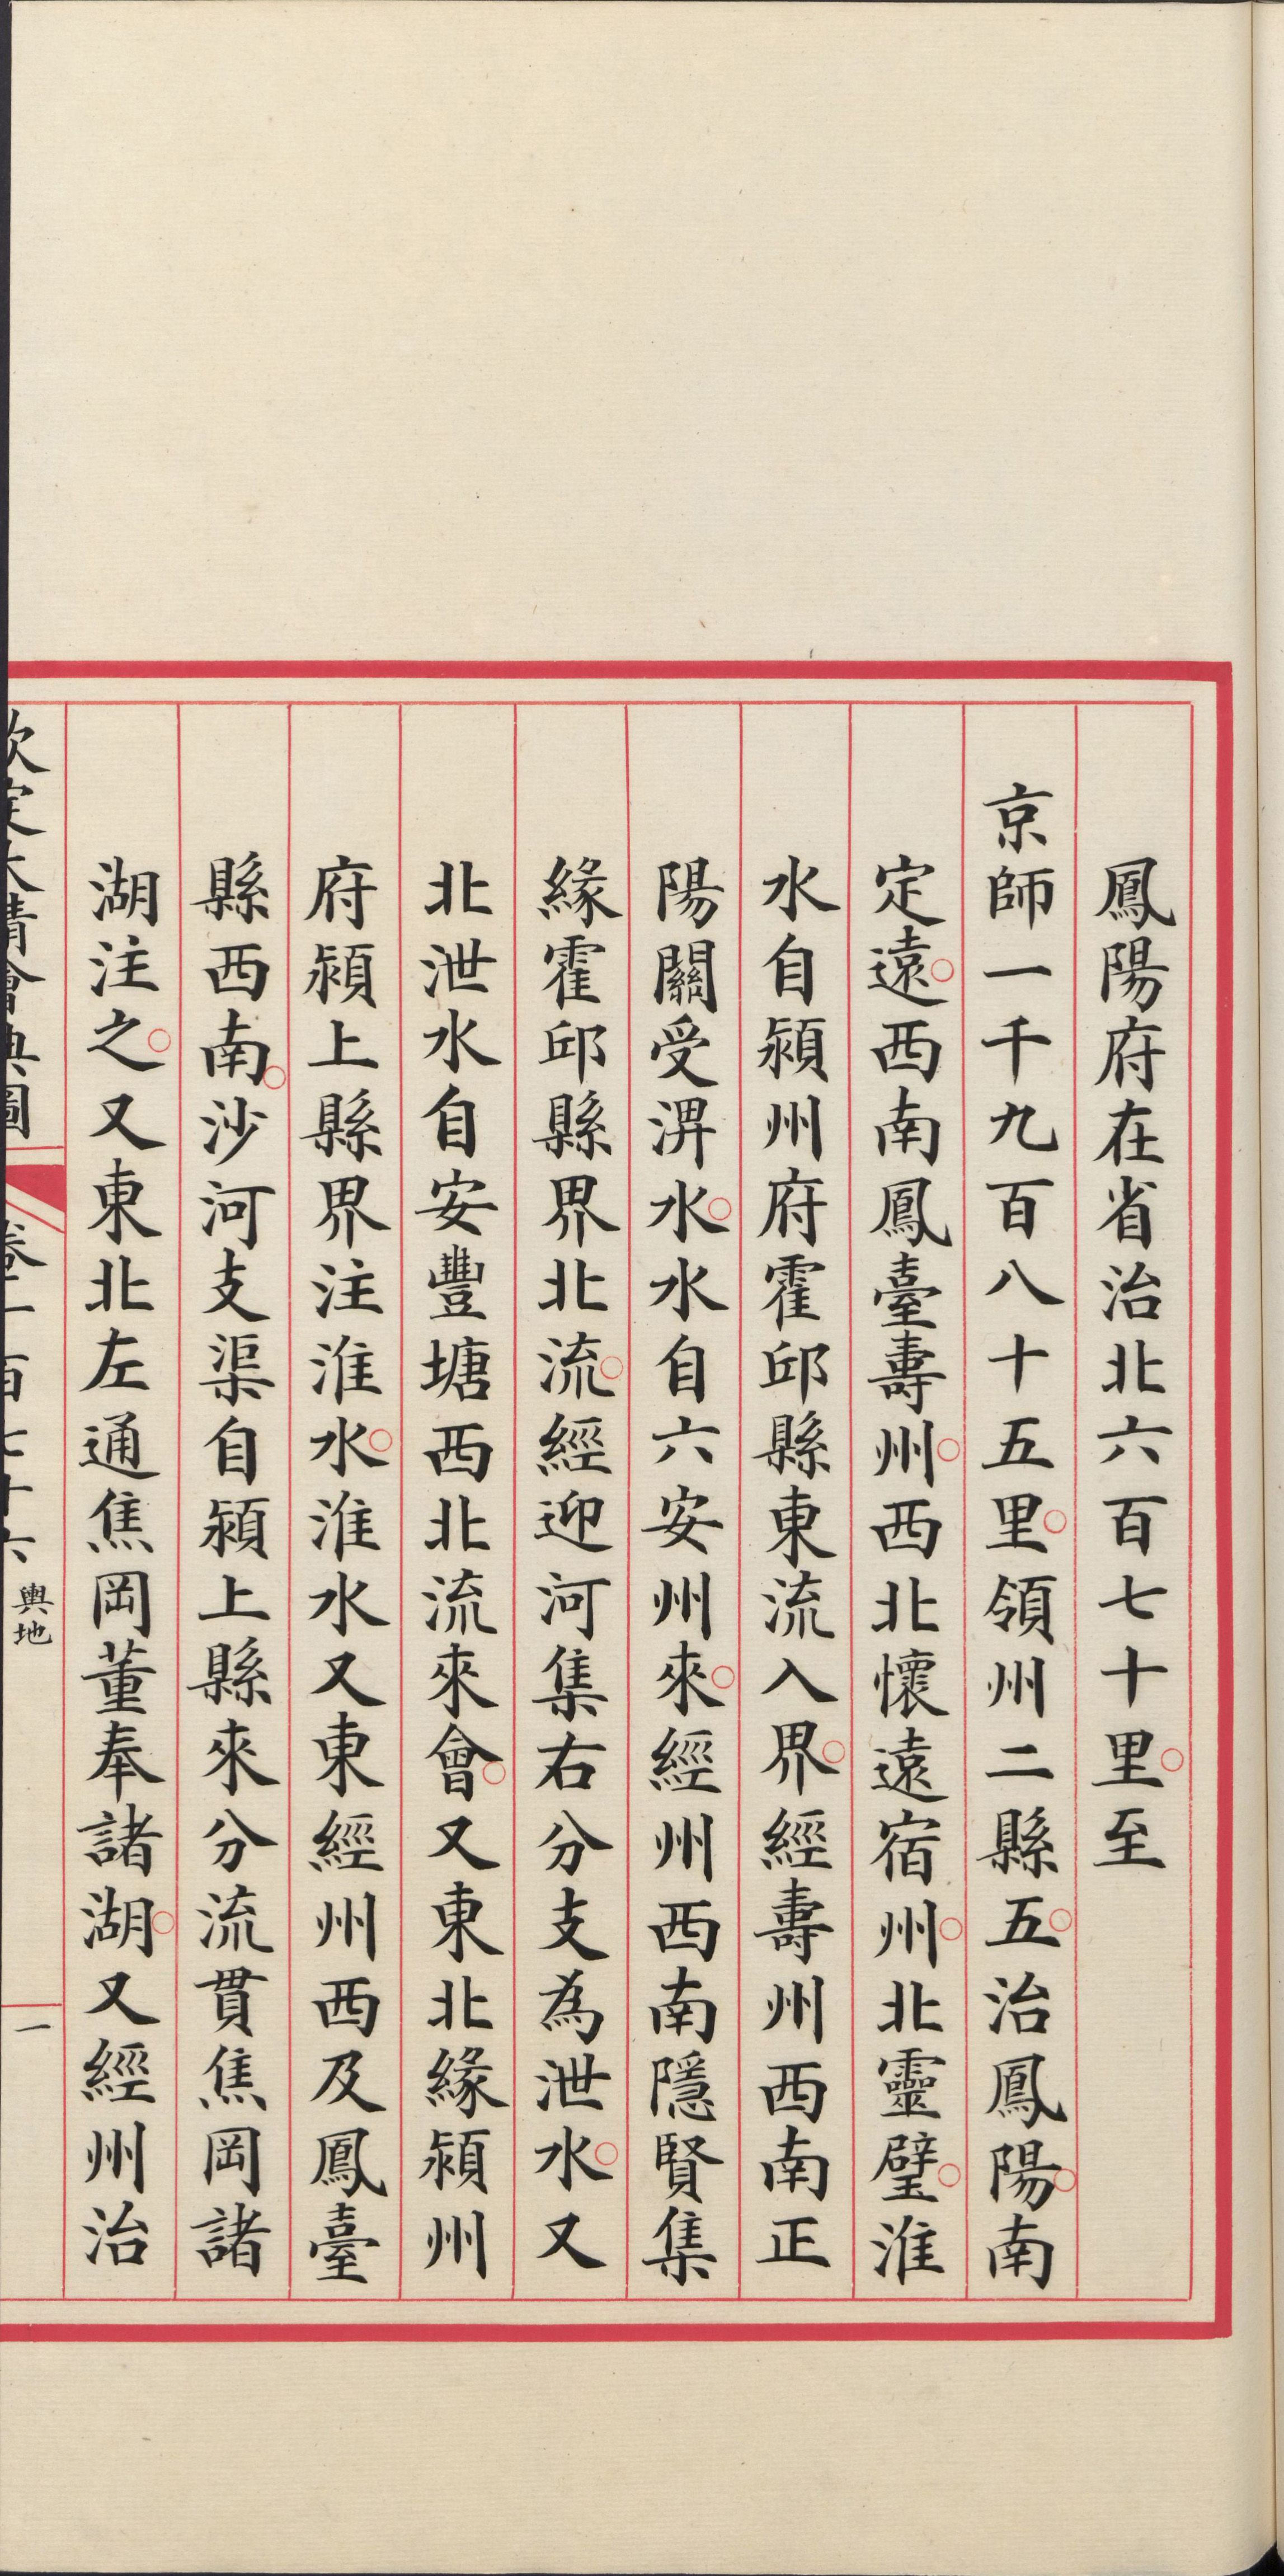 鳳陽府在省治北六百七十里○至
京師一千九百八十五里○領州二縣五○治鳳陽○南
定遠○西南鳳臺壽州○西北懷遠宿州○北靈璧○淮
水自潁州府霍邱縣東流入界○經壽州西南正
陽關受淠水○水自六安州來○經州西南隱賢集
緣霍邱縣界北流○經迎河集右分支為泄水○又
北泄水自安豐塘西北流來會○又東北緣潁州
府潁上縣界注淮水○淮水又東經州西及鳳臺
縣西南○沙河支渠自潁上縣來分流貫焦岡諸
湖注之○又東北左通焦岡董奉諸湖○又經州治
欽定大清會典圖 卷二百七十六 輿地 一